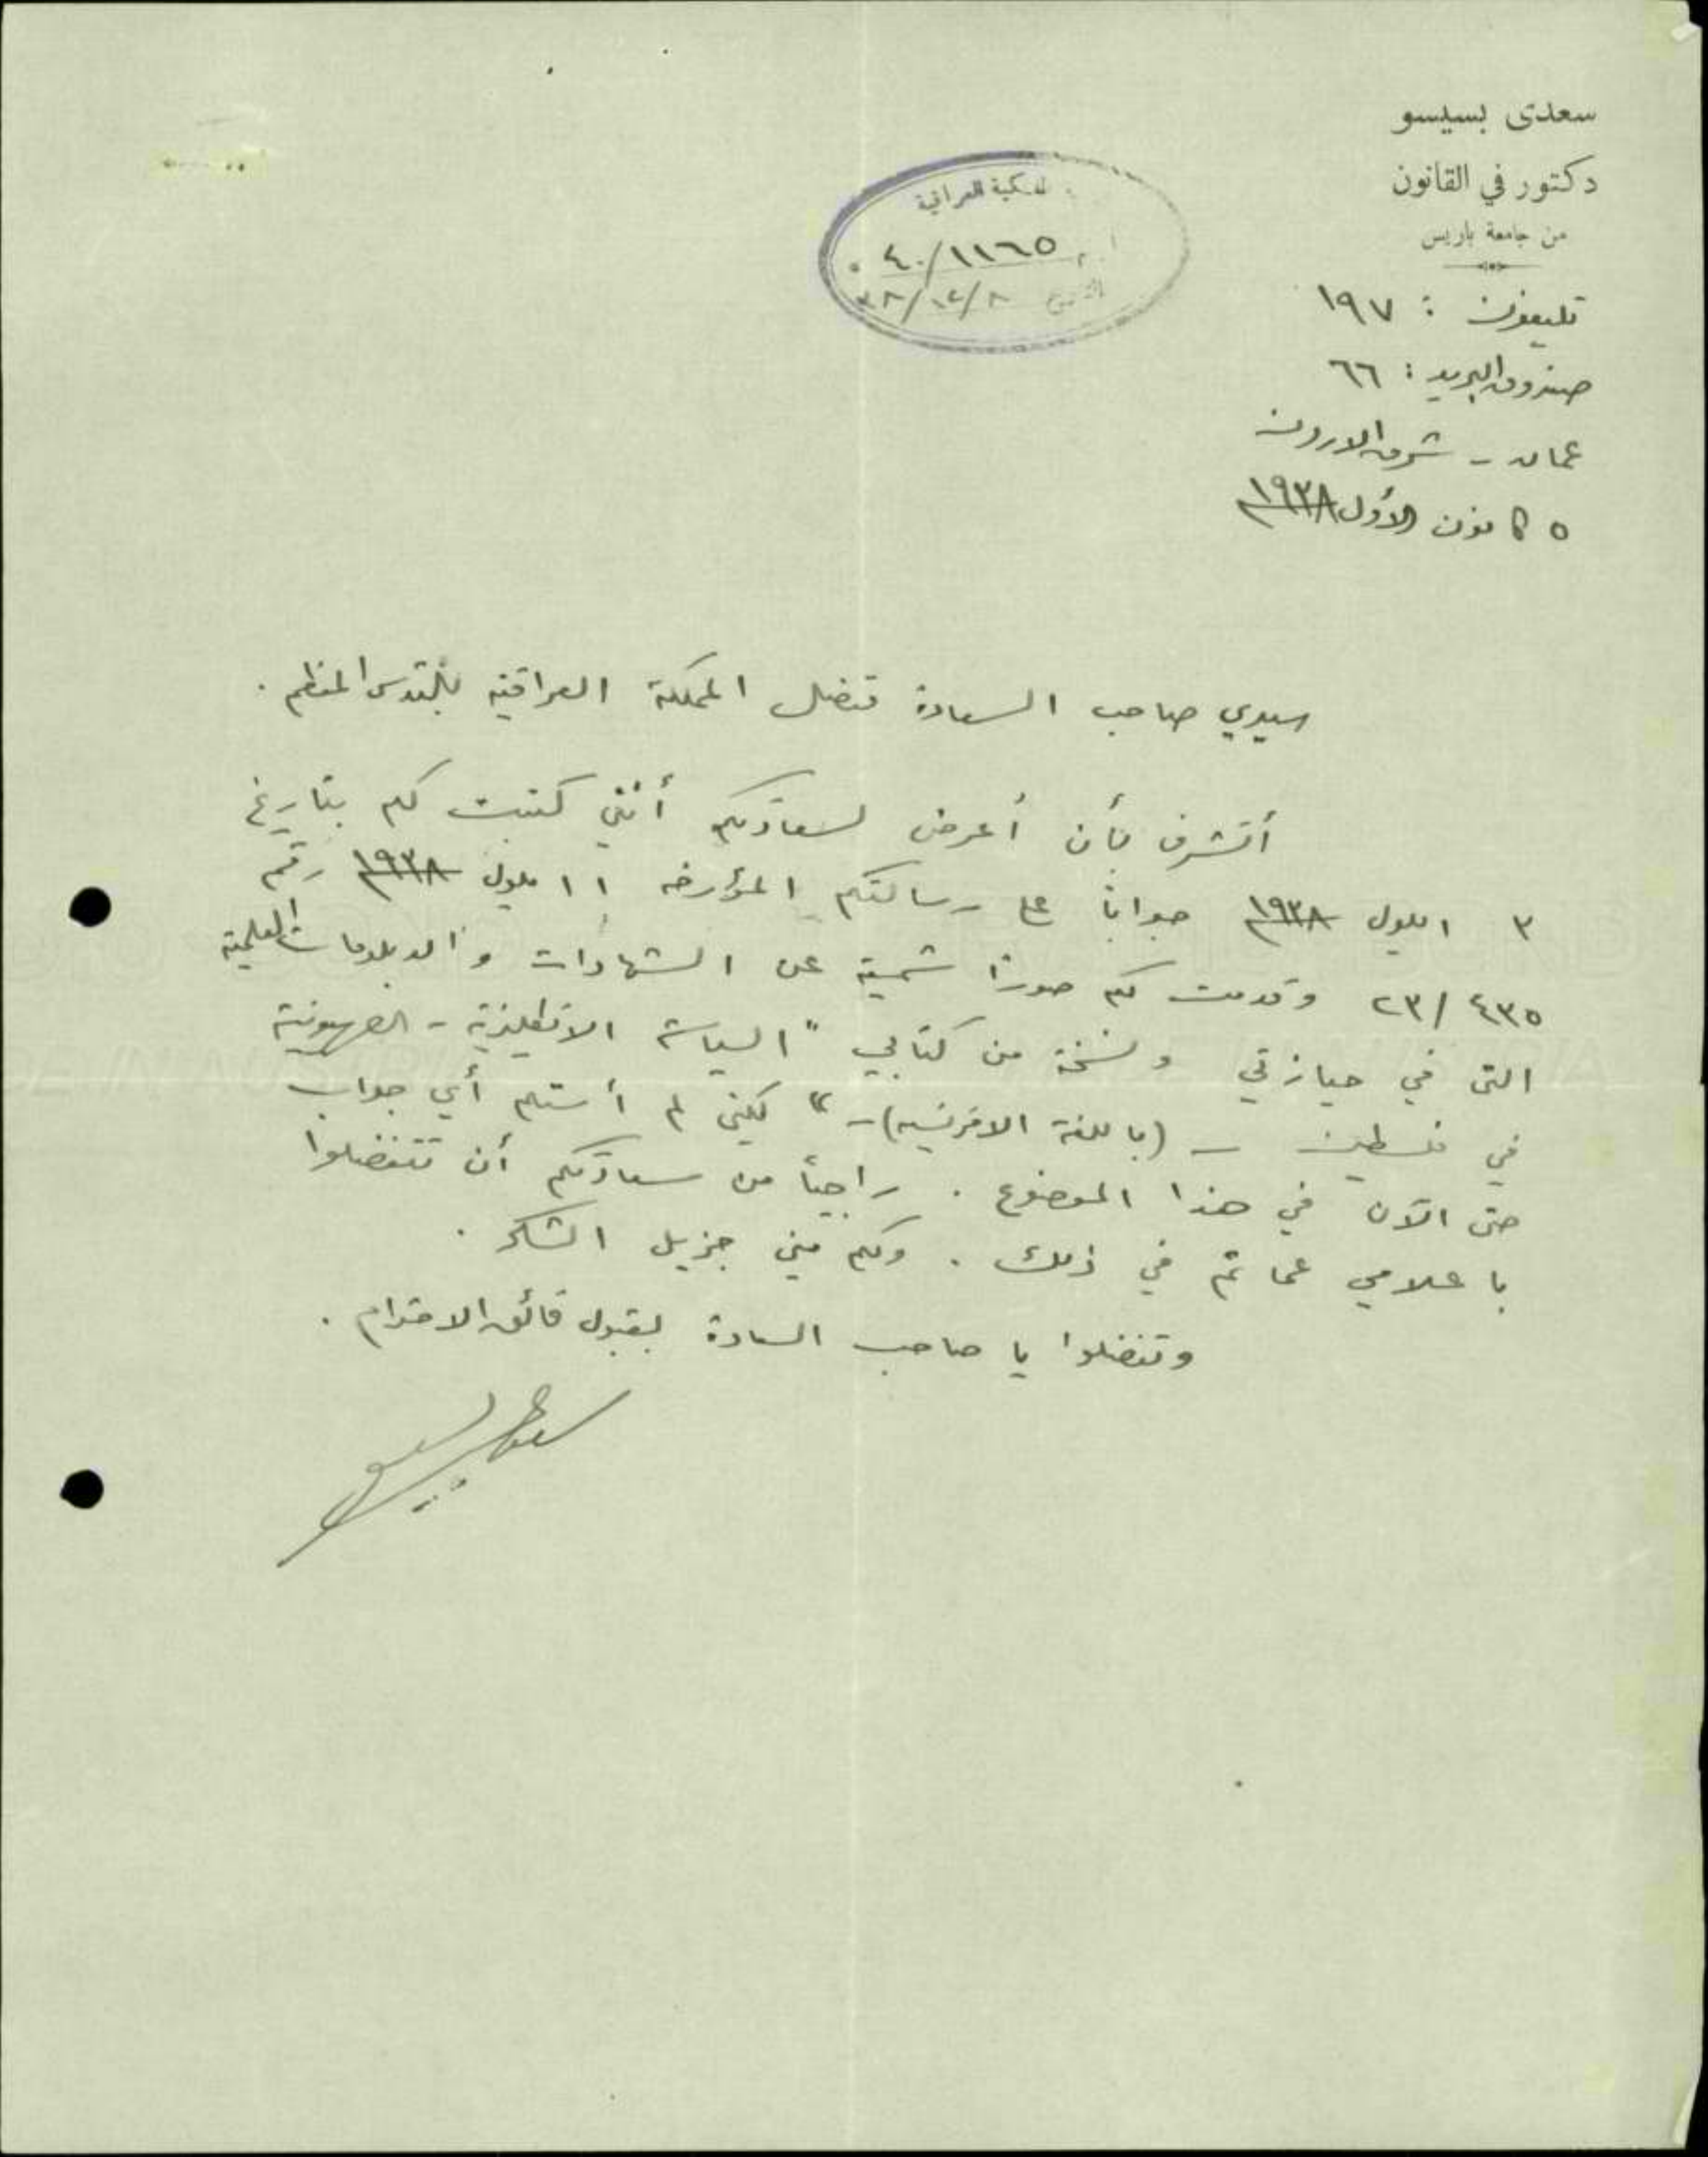 سعدى بسيسو
دكتور في القانون
من جامعة باريس
تليفون : ١٩٧
صندوق البريد : ٦٦
عمان - شرق الاردن
٥ كانون الأول ١٩٣٨م
الملكية العراقية
٤٠/١١٦٥
التاريخ ٣٨/١٢/٨
سيدي صاحب السعادة قنصل المملكة العراقية بالقدس المعظم .
أتشرف بأن أعرض لسعادتكم أنني كتبت لكم بتاريخ
٣ ايلول ١٩٣٨م جواباً على رسالتكم المؤرخه ١ ايلول ١٩٣٨م رقم
٢٣/٤٣٥ وقدمت لكم صوراً شمسية عن الشهادات والدبلومات العلمية
التى في حيازتي ونسخة من كتابي "السياسة الانكليزية - الصهيونية
في فلسطين - (باللغة الافرنسيه) -" لكننى لم أستلم أي جواب
حتى الآن في هذا الموضوع . راجياً من سعادتكم أن تتفضلوا
باعلامي عما تم في ذلك . ولكم مني جزيل الشكر .
وتفضلوا يا صاحب السعادة بقبول فائق الاحترام .